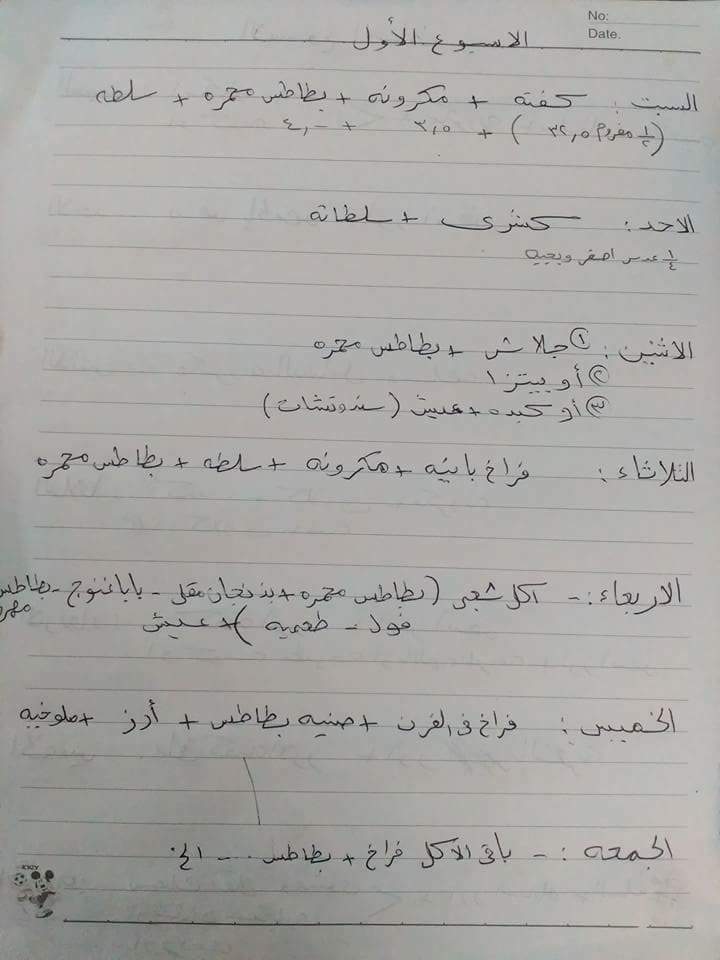 No:
Date.
الاسبوع الأول
السبت: كفته + مكرونه + بطاطس محمره + سلطه
(١/٢ مفروم ٣٢,٥) + ٣,٥ + ٤,-
الاحد: كشرى + سلطاته
١/٤ عدس اصفر وبجيه
الاثنين: ① جلاش + بطاطس محمره
② أو بيتزا
③ أو كبده + عيش (سندوتشات)
الثلاثاء: فراخ بانيه + مكرونه + سلطه + بطاطس محمره
الاربعاء:- اكل شعبى (بطاطس محمره + بذنجان مقلى - باباغنوج - بطاطس مهروسه
فول - طعميه) + عيش
الخميس: فراخ فى الفرن + صنيه بطاطس + أرز + ملوخيه
الجمعه:- باقى الأكل فراخ + بطاطس ... الخ.